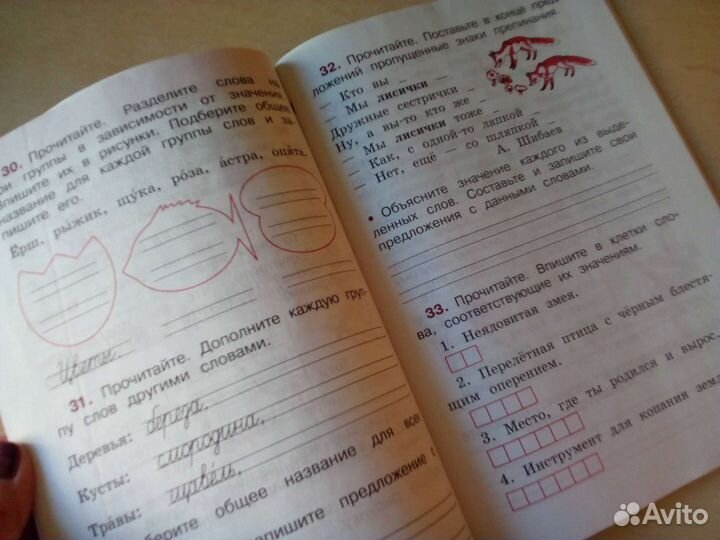 30. Прочитайте. Разделите слова на
три группы в зависимости от значения.
Впишите их в рисунки. Подберите общее
название для каждой группы слов и за-
пишите его.
Ёрш, ры́жик, щу́ка, ро́за, а́стра, опя́та.
Цветы.
31. Прочитайте. Дополните каждую груп-
пу слов другими словами.
Деревья: берёза,
Кусты: смородина,
Тра́вы: щаве́ль,
общее название для
запишите предложение с
32. Прочитайте. Поставьте в конце пред-
ложений пропущенные знаки препинания.
— Кто вы –
— Мы лисички –
Дружные сестрички –
Ну, а вы-то кто же –
— Мы лисички тоже –
— Как, с одной-то лапкой –
— Нет, ещё — со шляпкой –
А. Шибаев
• Объясните значение каждого из выде-
ленных слов. Составьте и запишите свои
предложения с данными словами.
33. Прочитайте. Впишите в клетки сло-
ва, соответствующие их значениям.
1. Неядовитая змея.
2. Перелётная птица с чёрным блестя-
щим оперением.
3. Место, где ты родился и вырос.
4. Инструмент для копания
Avito